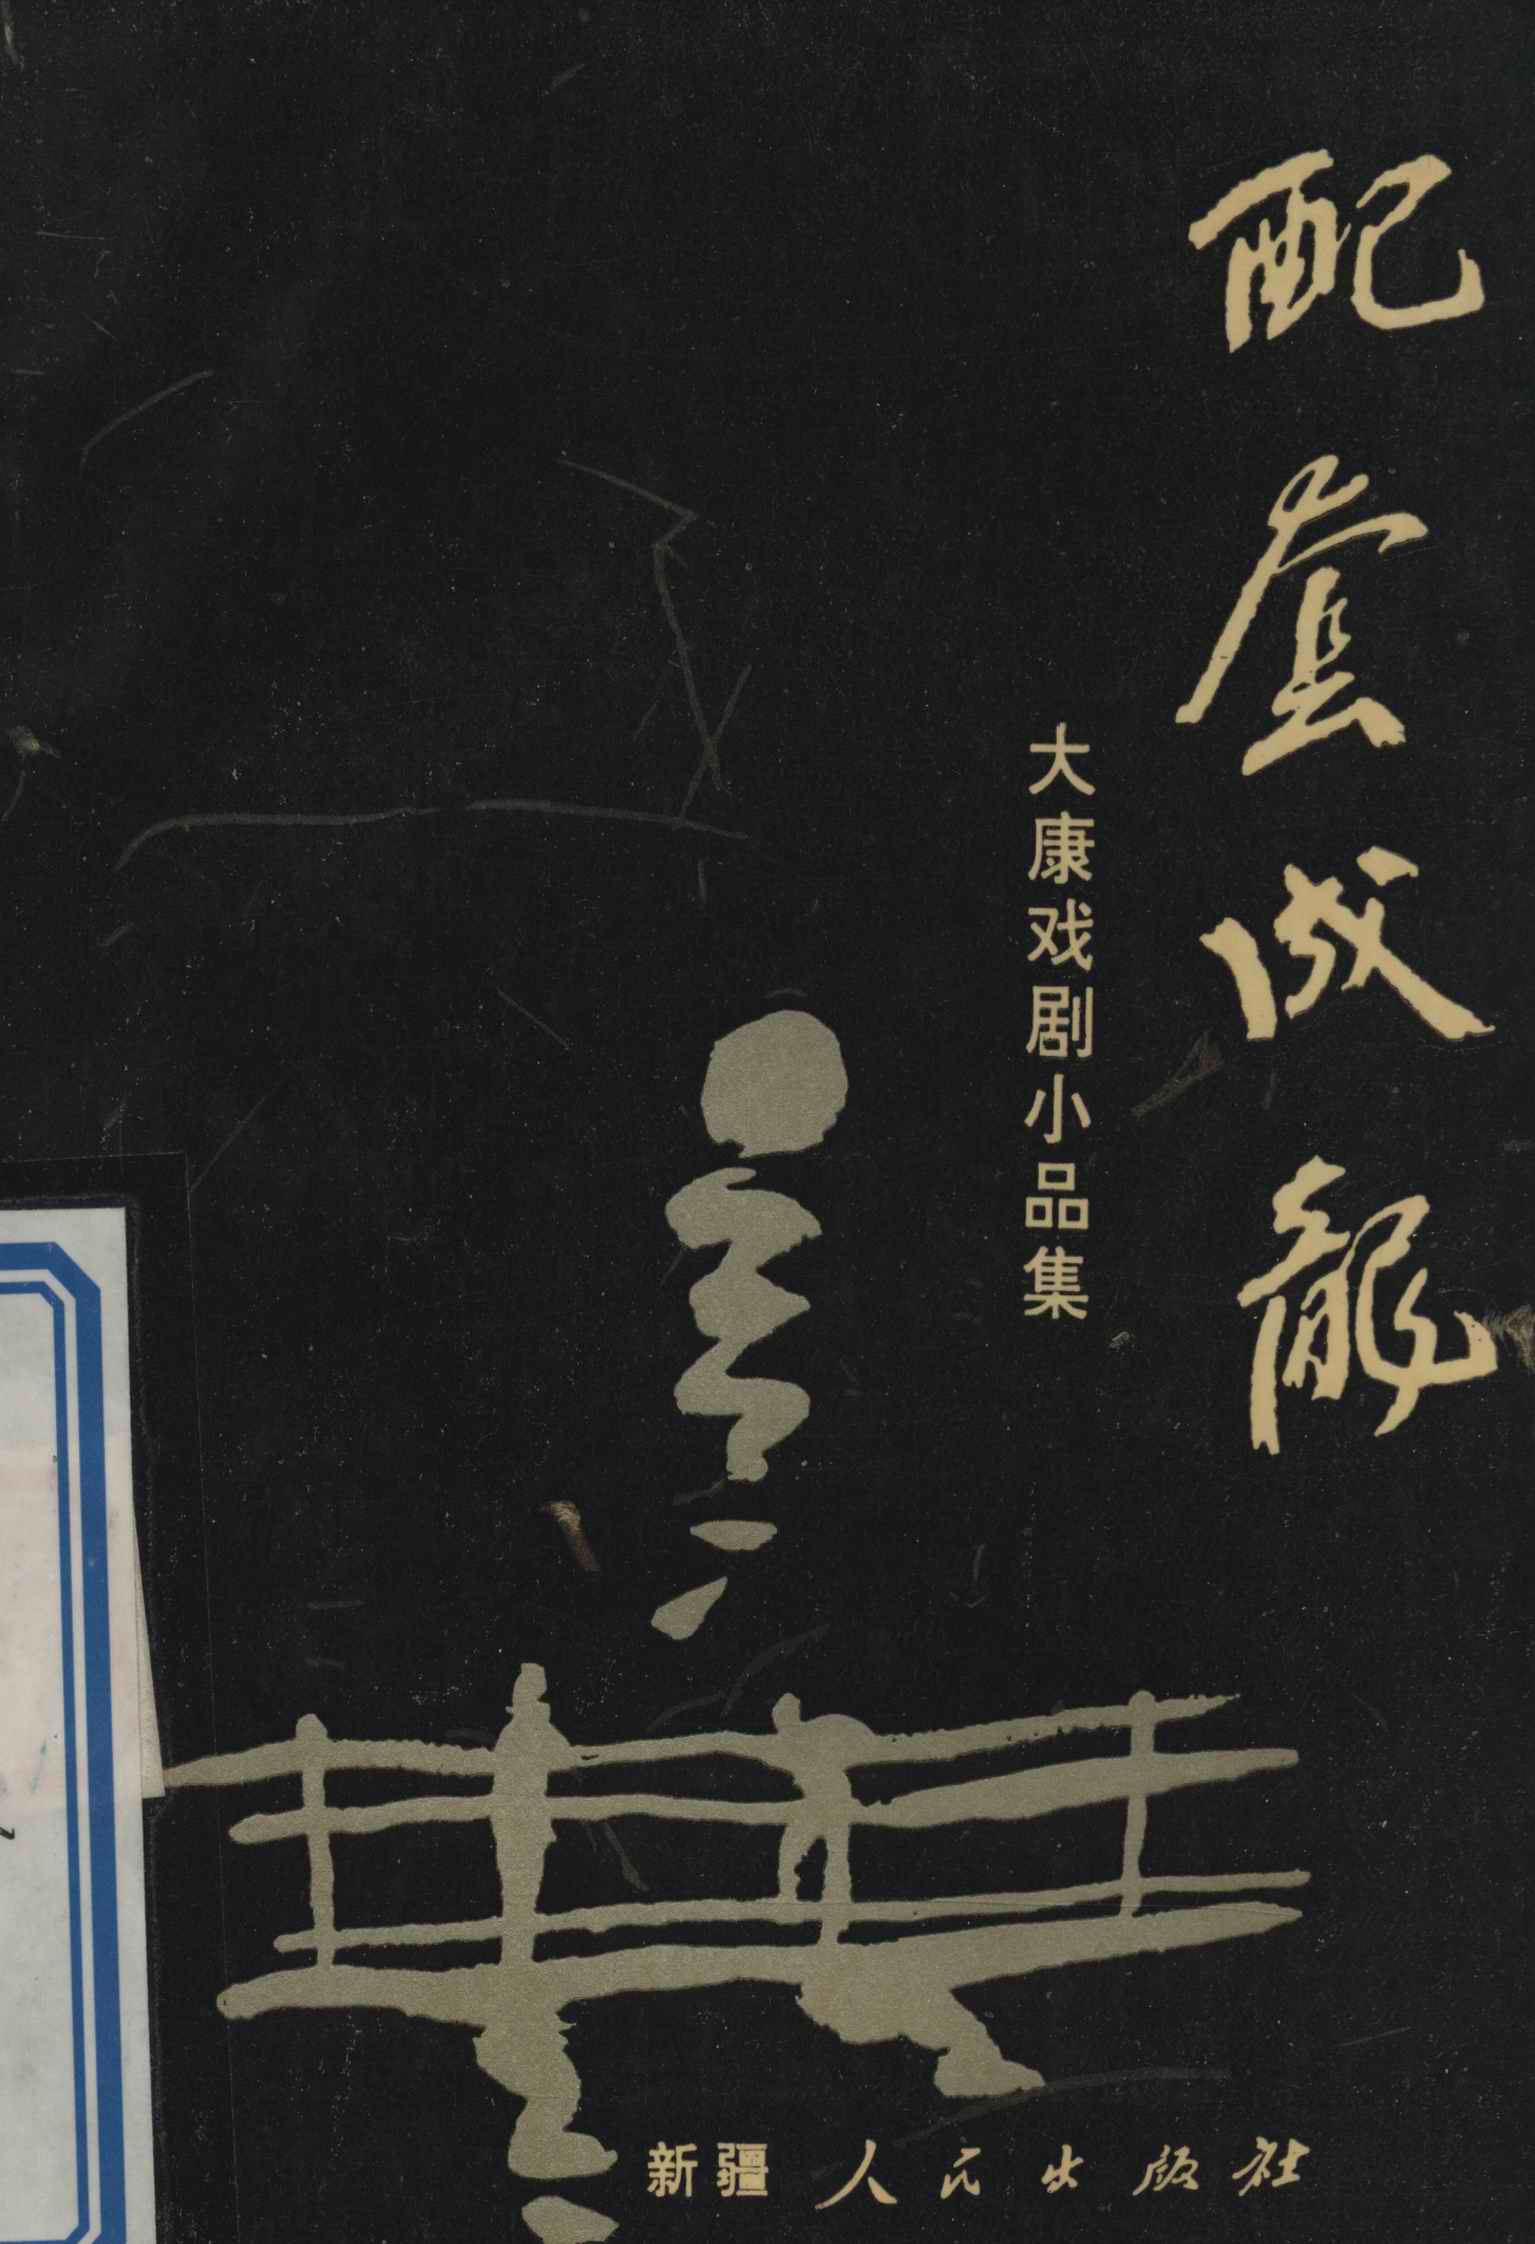 配套成龍
大康戏剧小品集
新疆人民出版社